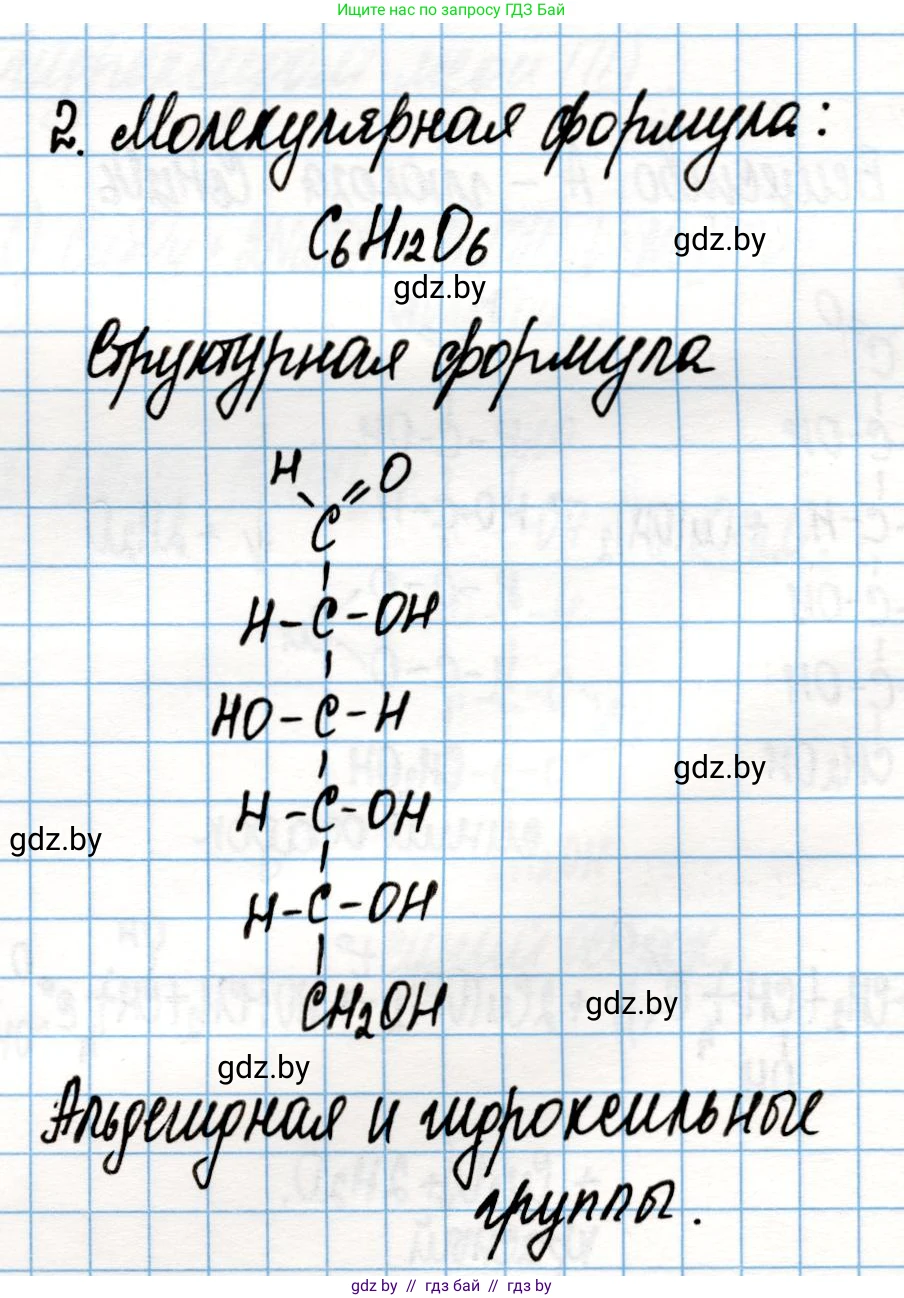 Ищите нас по запросу ГДЗ Бай
2. Молекулярная формула:
C₆H₁₂O₆
gdz.by
gdz.by
Структурная формула
H O
C
H-C-OH
HO-C-H
gdz.by
H-C-OH
gdz.by
H-C-OH
CH₂OH
gdz.by
gdz.by
Альдегидная и гидроксильные
группы.
gdz.by // гдз бай // гдз by